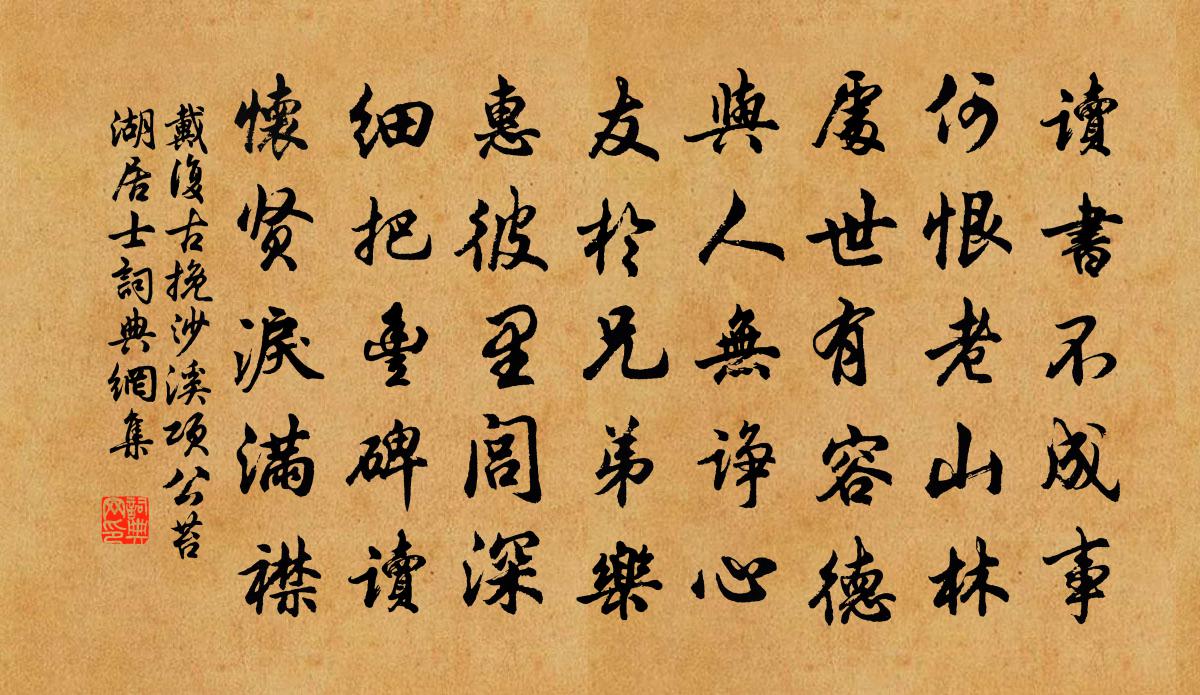 讀書不成事
何恨老山林
處世有容德
與人無諍心
友於兄弟樂
惠彼里閭深
細把豐碑讀
懷贤淚滿襟
戴復古挽沙溪項公苔
湖居士詞典網集
詞典网印